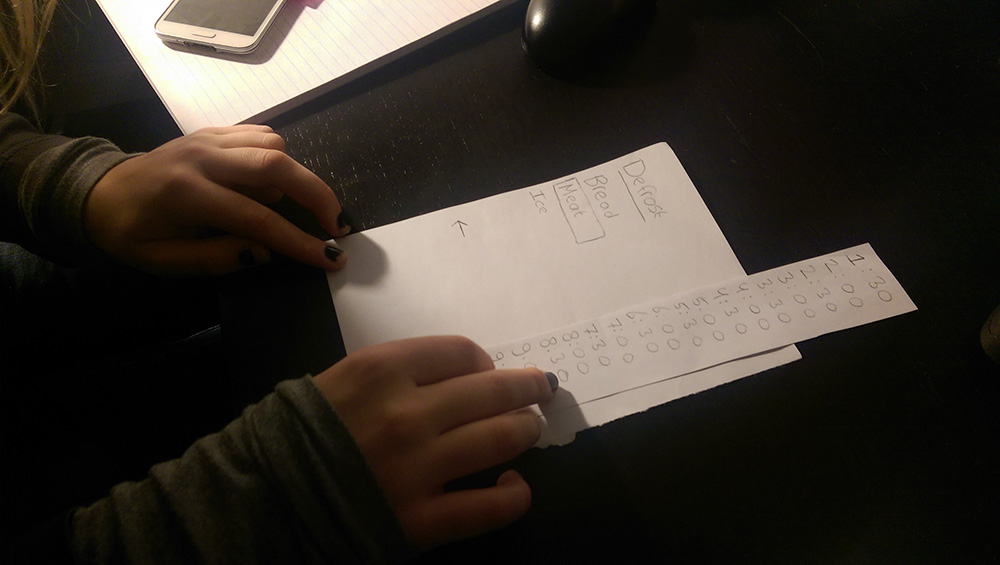 Defrost
Bread
Meat
Ice
←
1:30
2:00
2:30
3:00
3:30
4:00
4:30
5:00
5:30
6:00
6:30
7:00
7:30
8:00
8:30
9:0
9: